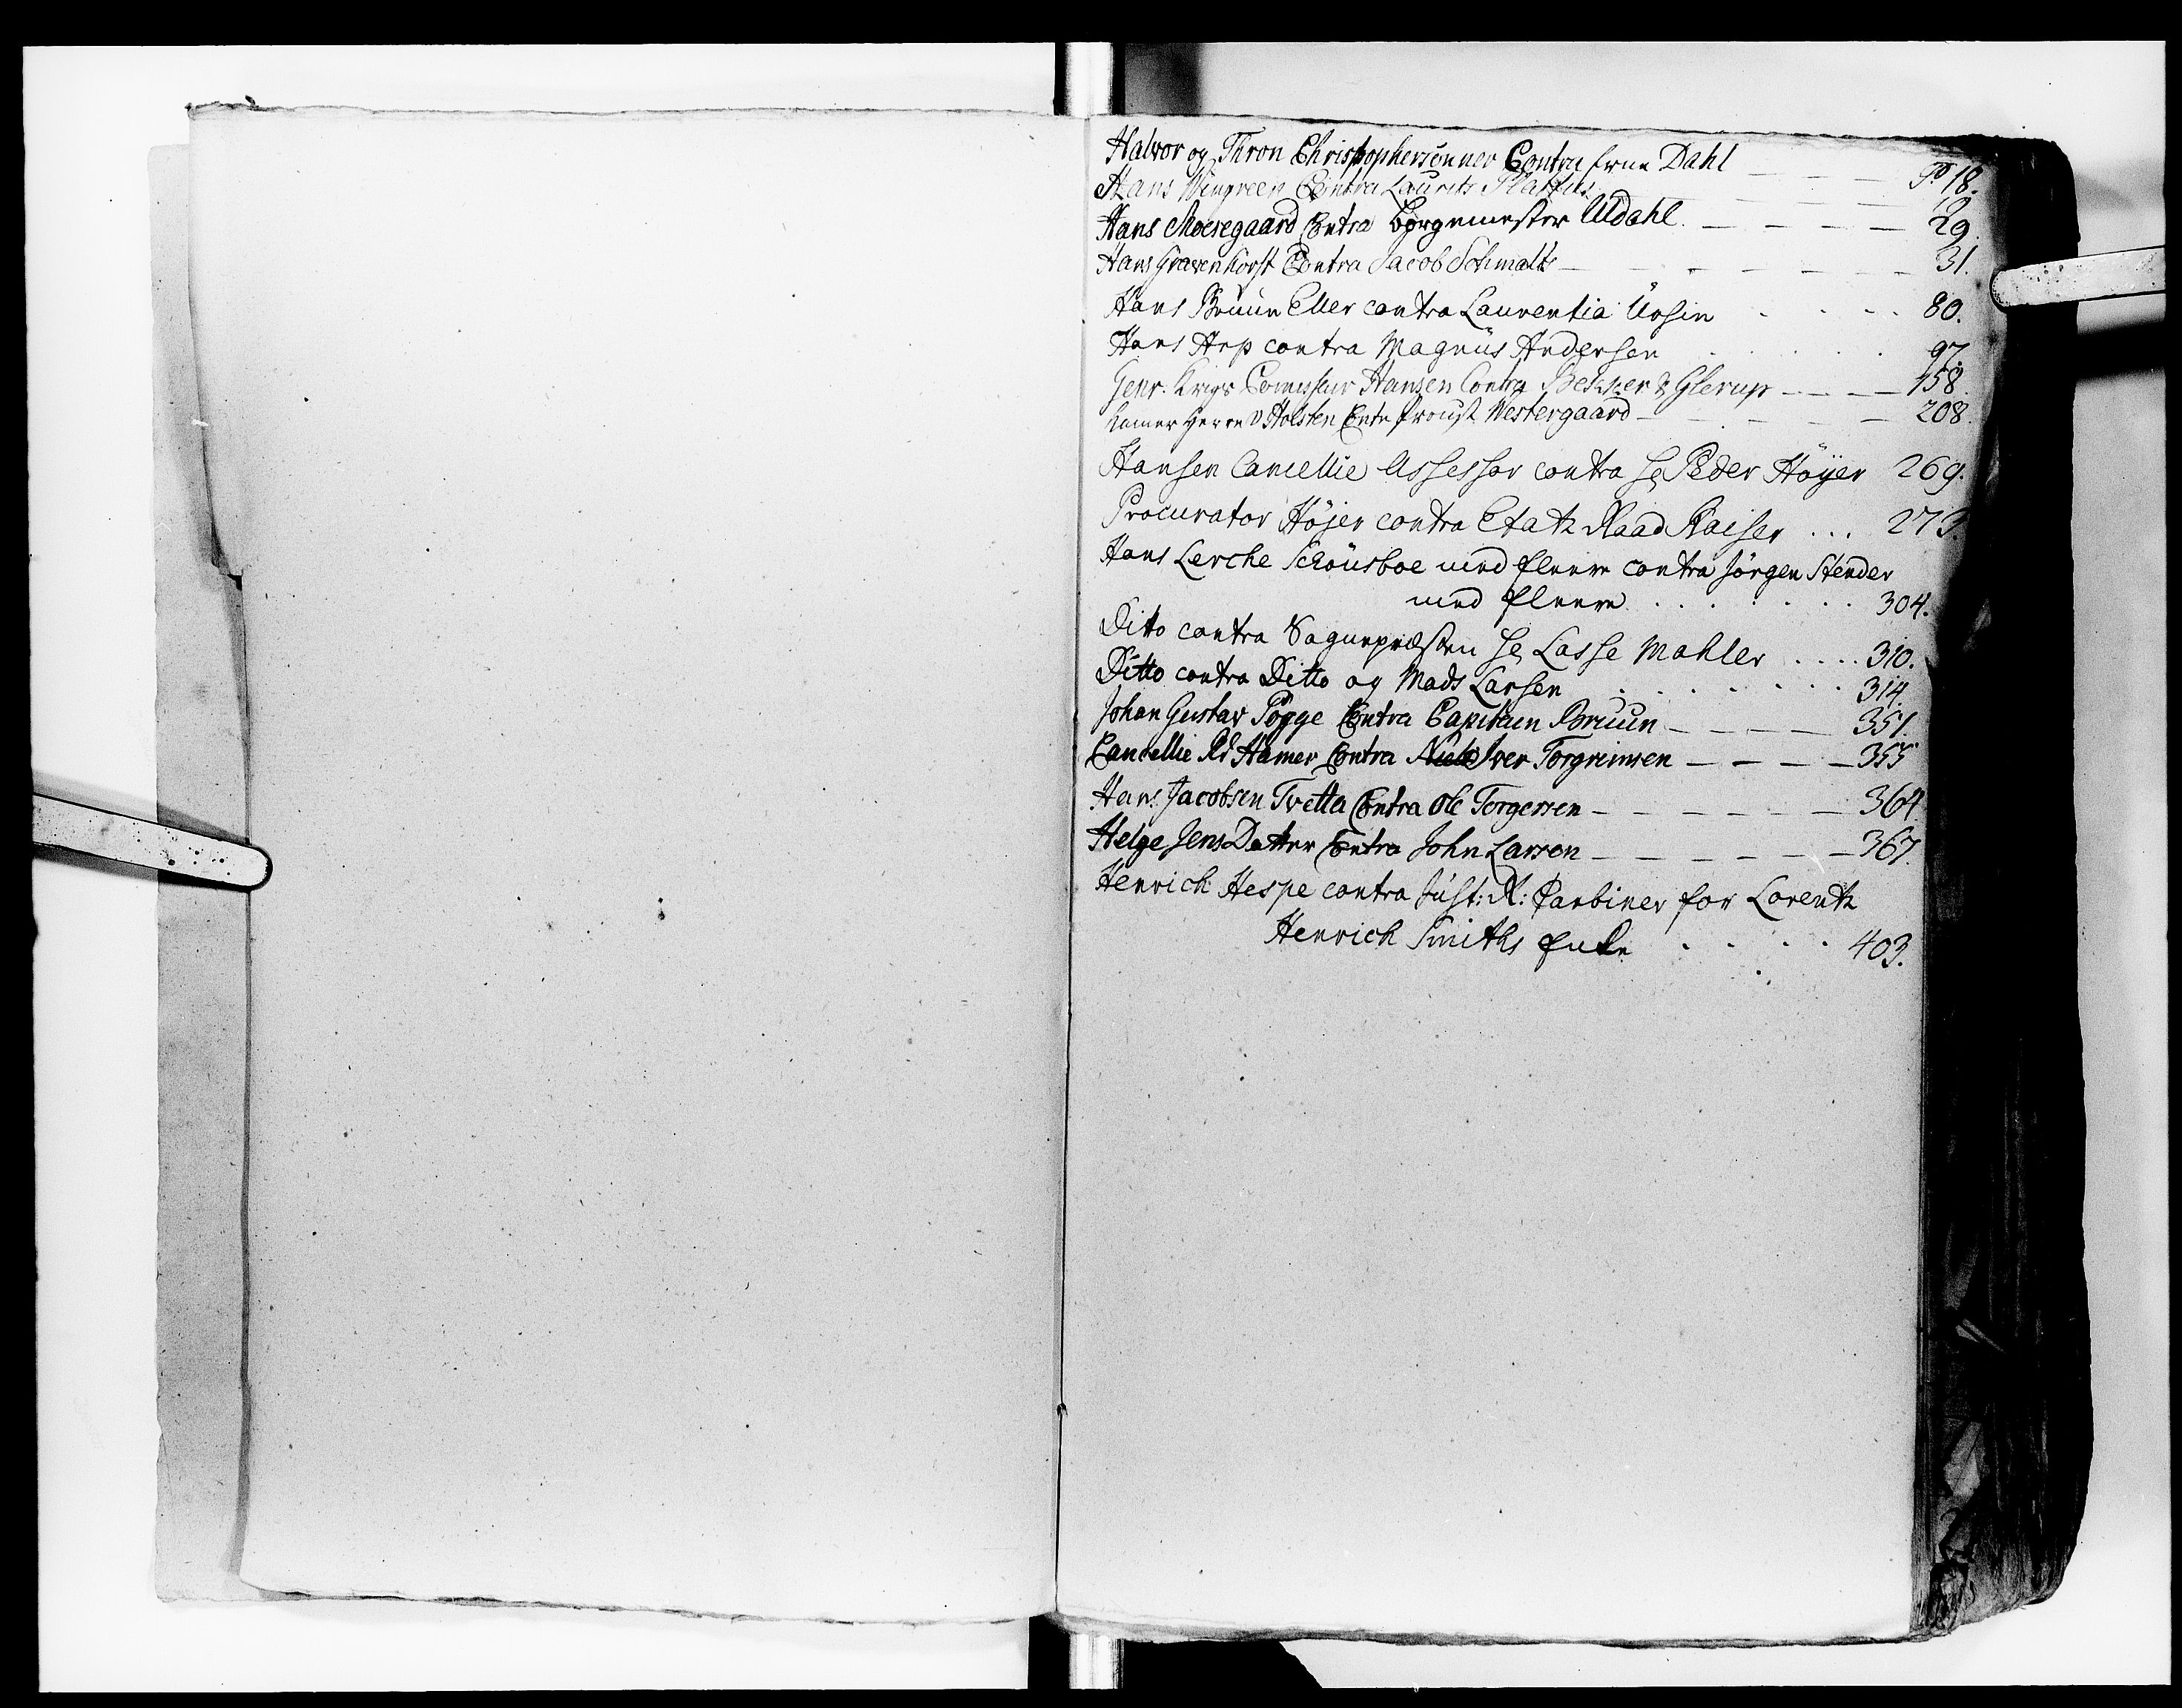 Halvor og Thron Christophersönner Contra frue Dahl — — — Fo 18.
Hans Wingreen Contra Laurits — — —
Hans Moesegaard Contra Borgemester Uldahl. — — — — — 29.
Hans Gravenhorst Contra Jacob Schmaltz — — — — — — 31.
Hans Bruun Eller contra Laurentia Ursin . . . . 80.
Hans Arp contra Magnus Andersen . . . . . 97.
Genr. Krigs Commissair Hansen Contra Bekker & Glerup — — — — 158
Kamer Herre v Holsten Contr Proust Westergaard — — — — — 208.
Hansen Cancellie Assessor contra Hr Peder Höyer 269.
Procurator Höjer contra Etatz Raad Kaiser ... 273.
Hans Lerche Schousboe med fleere contra Jörgen Stender
med fleere . . . . . . . 304.
Ditto contra Sognepræsten Hr Lasse Mahler .... 310.
Ditto contra Ditto og Mads Larsen . . . . . . . 314.
Johan Gustav Pogge Contra Capitain Bruun — — — — 351.
Cancellie Rd Hamer Contra Niels Iver Torgrimsen — — — — 355
Hans Jacobsen Tvetta Contra Ole Torgersen — — — — — — 364.
Helge JensDatter Contra John Larson — — — — — — 367.
Henrich Hespe contra Just: R: Carbiner for Lorentz
Henrich Smiths Enke . . . . 403.